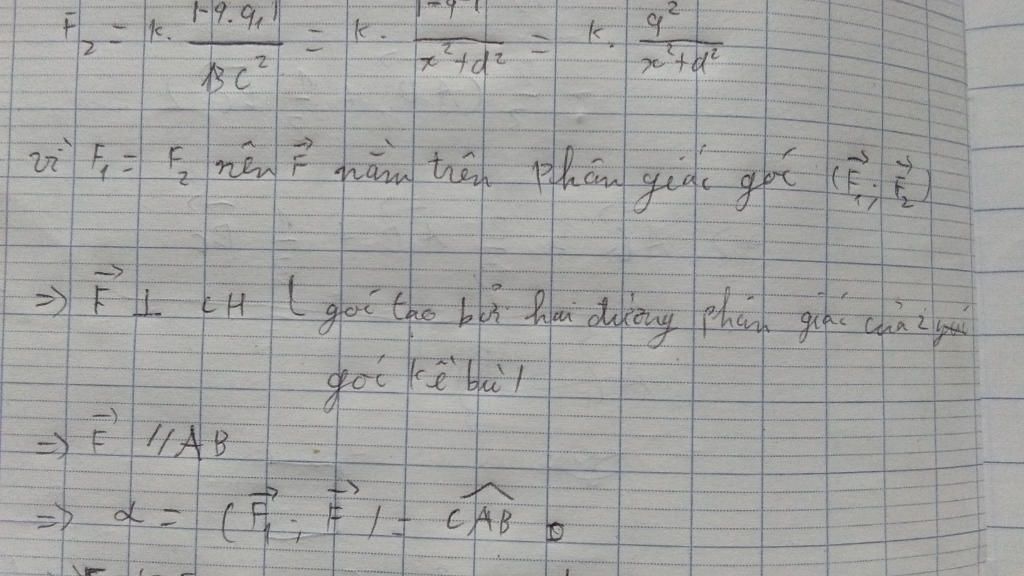 F₂ = k. |-q.q₁| / BC² = k. |-q²| / x²+d² = k. q² / x²+d²
vì F₁ = F₂ nên F⃗ nằm trên phân giác góc (F⃗₁; F⃗₂)
=> F⃗ ⊥ CH ( góc tạo bởi hai đường phân giác của 2
góc kề bù)
=> F⃗ // AB
=> α = (F⃗₁; F⃗) = CAB